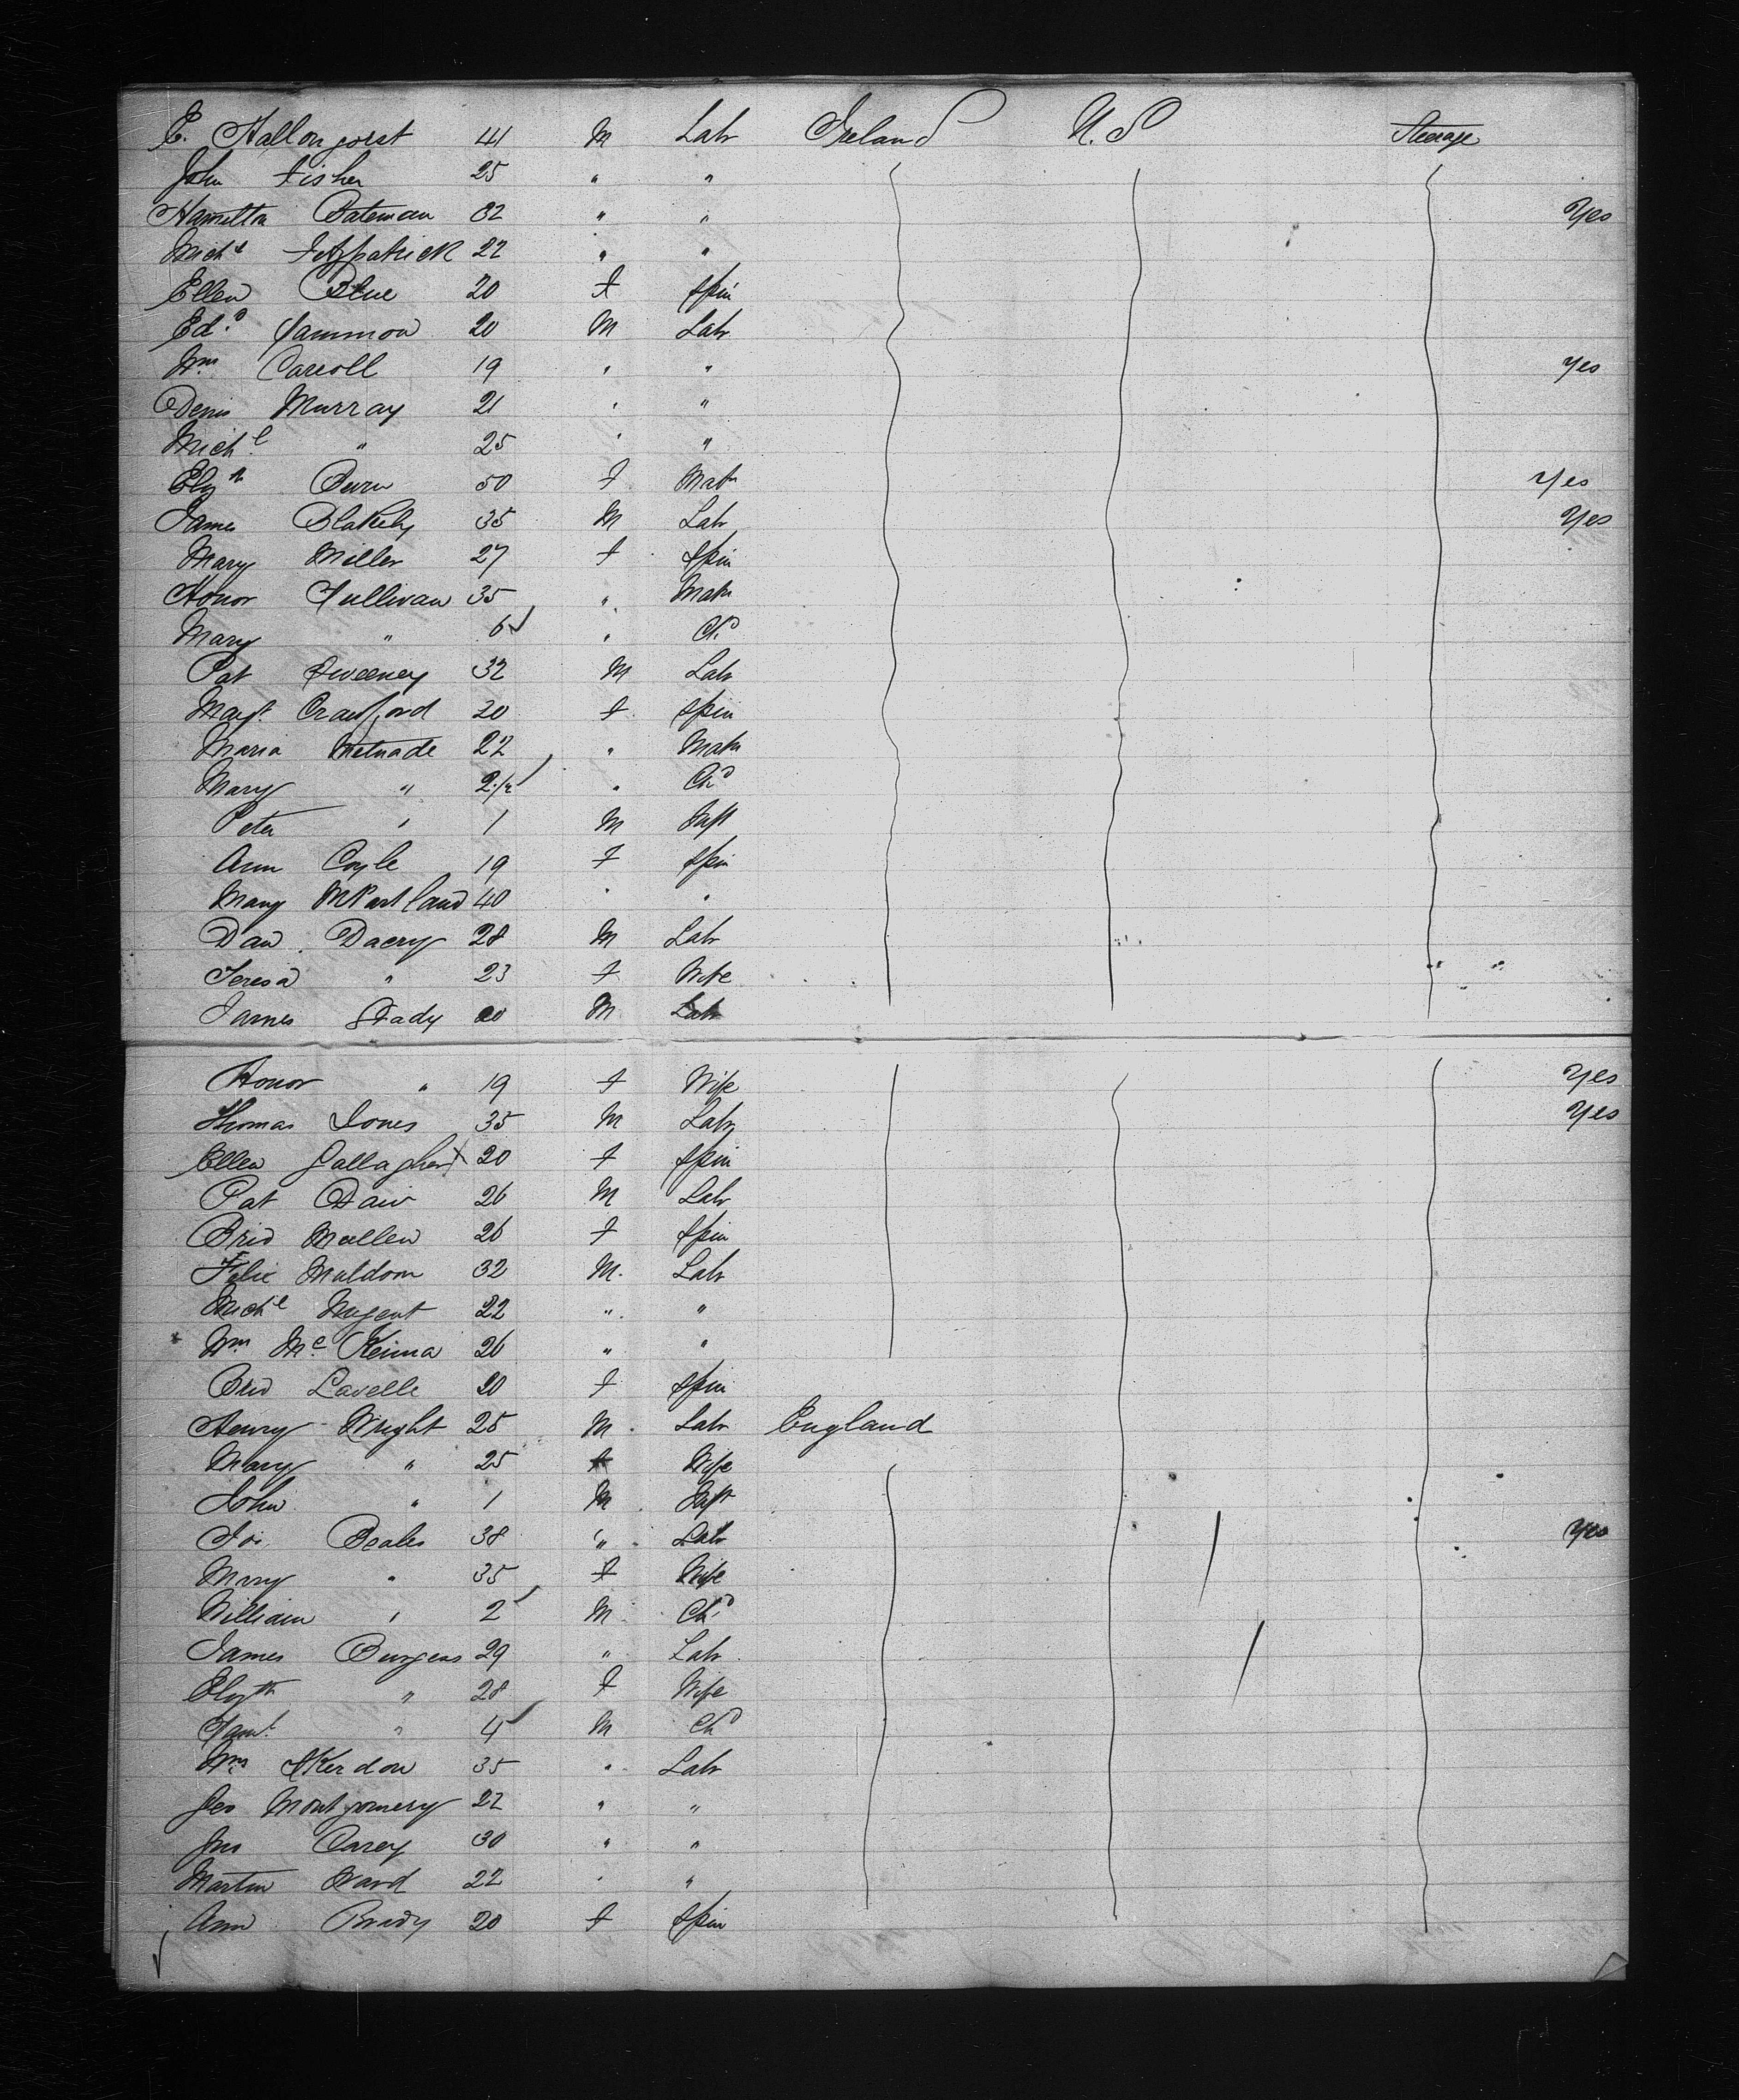 E. Hallongorst 41 M Labr Ireland U.S Steerage
John Fisher 25 " "
Hamilton Bateman 32 " " Yes
Michl Fitzpatrick 22 " "
Ellen Blue 20 F Spin
Edd. Sammon 20 M Labr
Wm Carroll 19 " " Yes
Denis Murray 21 " "
Michl " 25 " "
Elizh 50 F Matn Yes
James Blakely 35 M Labr Yes
Mary Miller 27 F Spin
Honor Sullivan 35 " Matn
Mary " 6 " Chd
Pat Sweeney 32 M Labr
Margt. Crawford 20 F Spin
Maria 22 " Matn
Mary " 2 " Chd
Peter " 1 M Inft
Ann Coyle 19 F Spin
Mary McPartland 40 " "
Dan Dacry 28 M Labr
Teresa " 23 F Wife
James Grady 20 M Labr
Honor " 19 F Wife Yes
Thomas Jones 35 M Labr Yes
Ellen Gallagher X 20 F Spin
Pat 26 M Labr
Brid Mullen 26 F Spin
Felix Muldoon 32 M. Labr
Michl Nugent 22 " "
x Wm McKenna 26 " "
Brid Lavelle 20 F Spin
Henry Wright 25 M. Labr England
Mary " 25 F Wife
John " 1 M Inft
Jos Beales 38 " Labr Yes
Mary " 35 F Wife
William " 2 M Chd
James Burgess 29 " Labr
Elizth " 28 F Wife
Saml. " 4 M Chd
Wm Skerdon 35 " Labr
Geo Montgomery 22 " "
Jno Carey 30 " "
Martin Ward 22 " "
Ann Brady 20 F Spin